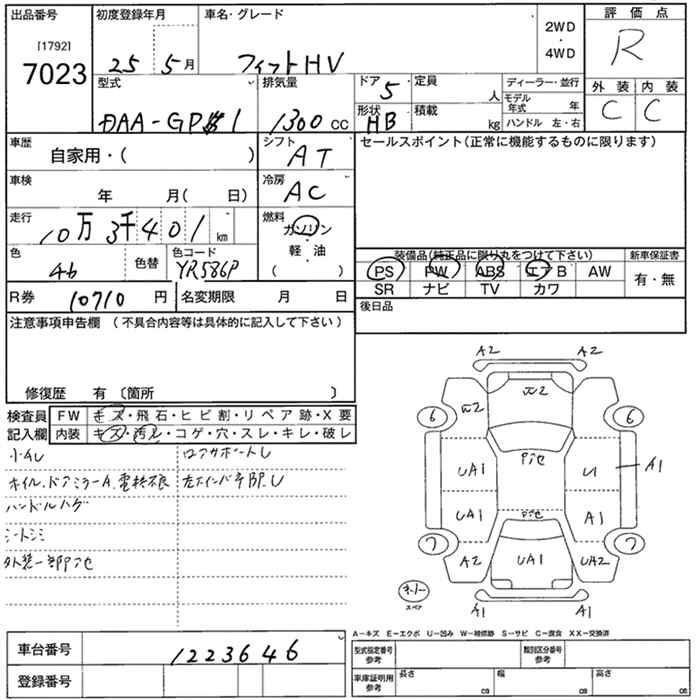 出品番号 初度登録年月 車名・グレード 2WD・4WD 評価点
[1792] 7023 25 5月 フィットHV R
型式 排気量 ドア 5 定員 人 ディーラー・並行 外装 内装
DAA-GP 1 1300 cc 形状 HB 積載 kg モデル年式 年 ハンドル 左・右 C C
車歴 自家用・( ) シフト AT セールスポイント(正常に機能するものに限ります)
車検 年 月( 日) 冷房 AC
走行 10万3千401 km 燃料 ガソリン・軽・油 ( )
色 46 色替 色コード YR586P
装備品(純正品に限り丸をつけて下さい) 新車保証書
PS PW ABS エアB AW 有・無
SR ナビ TV カワ
R券 10710円 名変期限 月 日 後日品
注意事項申告欄 (不具合内容等は具体的に記入して下さい)
修復歴 有 〔箇所 〕
検査員 FW キズ・飛石・ヒビ割・リペア跡・X要
記入欄 内装 キズ・汚レ・コゲ・穴・スレ・キレ・破レ
小AU ロアサポートU
ホイル、ドアミラーA、電格不良 左インパネ部U
ハンドルハゲ
シートシミ
外装一部
A2 A2
6 6
UA1 U A1
UA1 A1
7 7
A2 UA1 UA2
スペア
A1 A1
A-キズ E-エクボ U-凹み W-補修跡 S-サビ C-腐食 XX-交換済
車台番号 1223646 型式指定番号 参考 類別区分番号 参考
登録番号 車庫証明用 参考 長さ cm 幅 cm 高さ cm